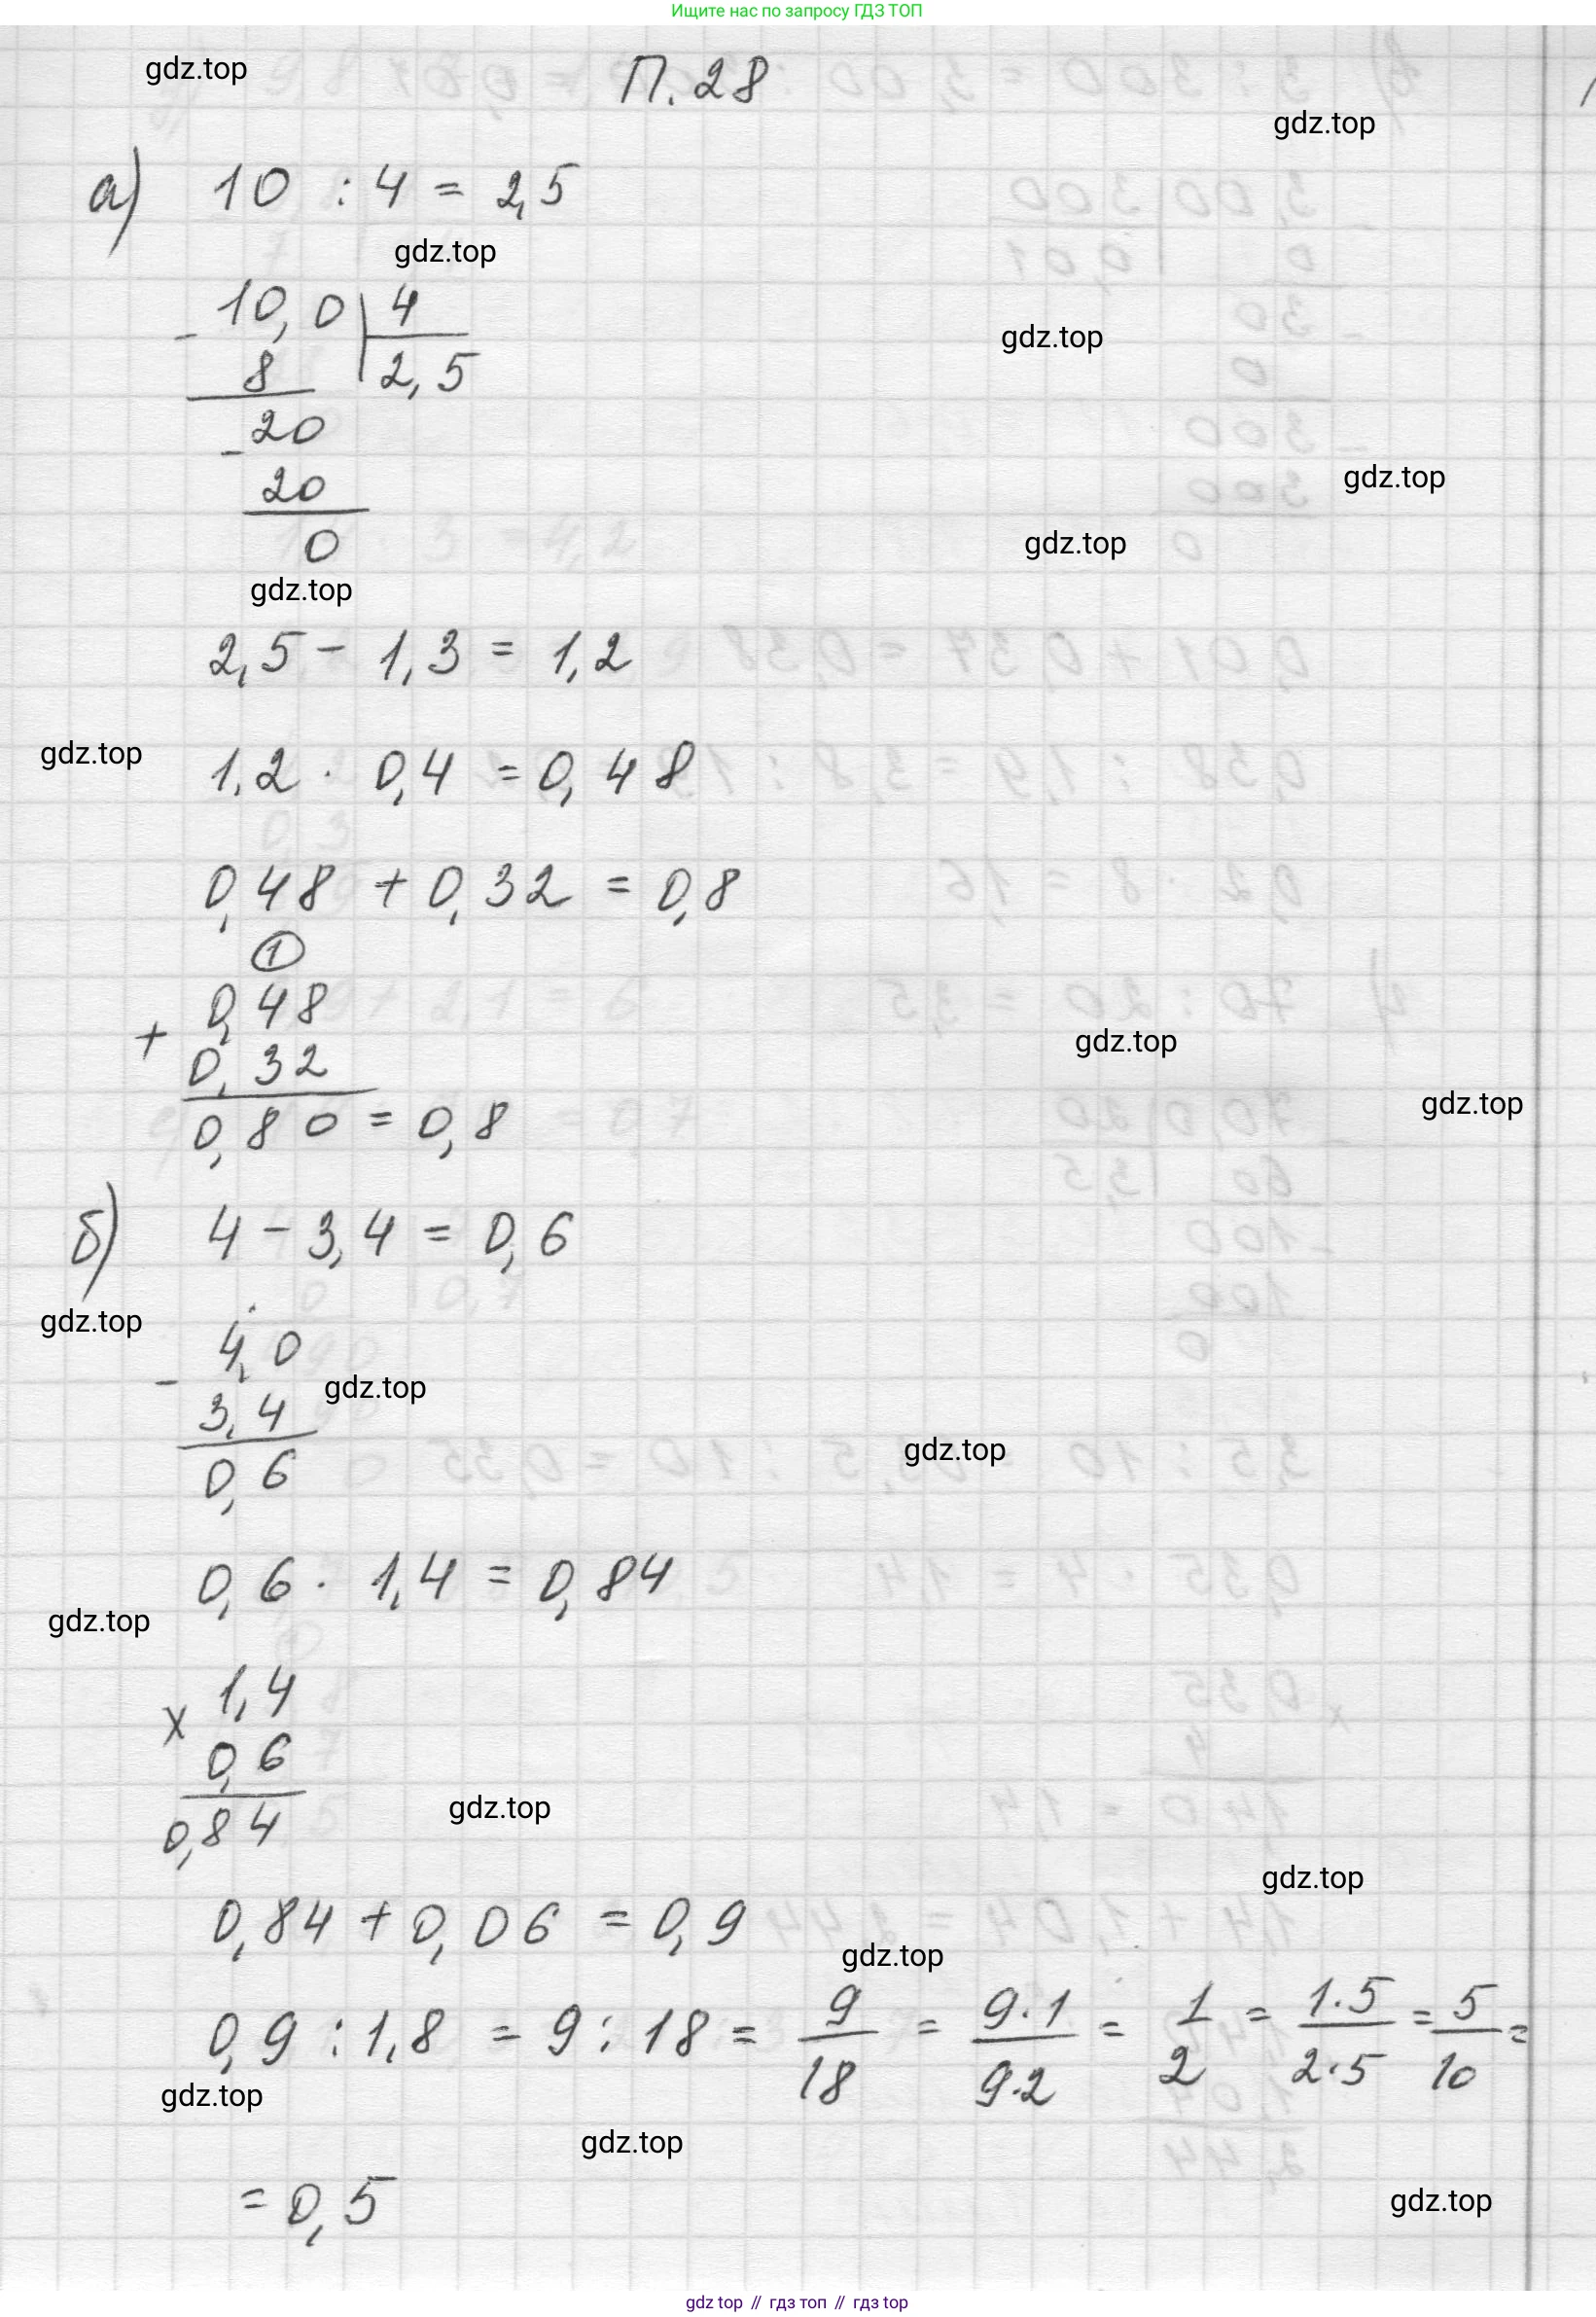 Ищите нас по запросу ГДЗ ТОП
gdz.top
П. 28
gdz.top
а) 10 : 4 = 2,5
gdz.top
- 10,0 | 4
8 | 2,5
gdz.top
- 20
20
gdz.top
0
gdz.top
gdz.top
2,5 - 1,3 = 1,2
gdz.top
1,2 · 0,4 = 0,48
0,48 + 0,32 = 0,8
1
+ 0,48
0,32
gdz.top
0,80 = 0,8
gdz.top
б) 4 - 3,4 = 0,6
gdz.top
- 4,0
3,4
gdz.top
0,6
gdz.top
0,6 · 1,4 = 0,84
gdz.top
x 1,4
0,6
0,84
gdz.top
gdz.top
0,84 + 0,06 = 0,9
gdz.top
0,9 : 1,8 = 9 : 18 = 9/18 = 9·1/9·2 = 1/2 = 1·5/2·5 = 5/10 =
gdz.top
gdz.top
= 0,5
gdz.top
gdz top // гдз топ // гдз top